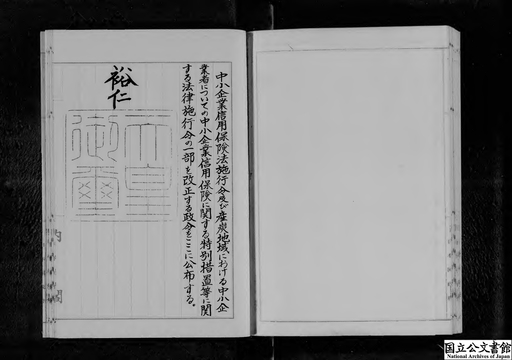 中小企業信用保険法施行令及び産炭地域における中小企
業者についての中小企業信用保険に関する特別措置等に関
する法律施行令の一部を改正する政令をここに公布する。
裕仁
天皇
御璽
国立公文書館
National Archives of Japan